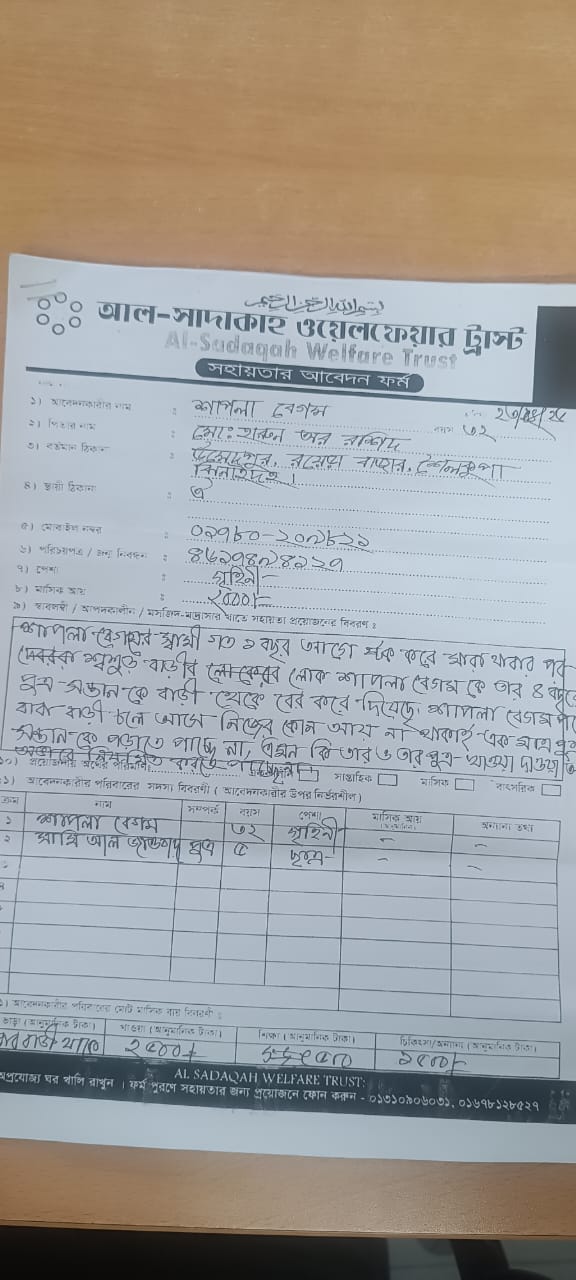 আল-সাদাকাহ ওয়েলফেয়ার ট্রাস্ট
Al-Sadaqah Welfare Trust
সহায়তার আবেদন ফর্ম
১) আবেদনকারীর নাম : শাপলা বেগম
২) পিতার নাম : মোঃ হারুন অর রশিদ বয়স ৩২
৩) বর্তমান ঠিকানা : রয়েড়া বাজার, শৈলকুপা
ঝিনাইদহ।
৪) স্থায়ী ঠিকানা : ঐ
৫) মোবাইল নম্বর :
৬) পরিচয়পত্র / জন্ম নিবন্ধন :
৭) পেশা : গৃহিনী
৮) মাসিক আয় : ২০০০/-
৯) স্বাবলম্বী / আপদকালীন / মসজিদ-মাদ্রাসার খাতে সহায়তা প্রয়োজনের বিবরণ :
শাপলা বেগমের স্বামী গত ১ বছর আগে স্টক করে মারা যাবার পর
শ্বশুড় বাড়ীর লোক শাপলা বেগম কে তার ৪
পুত্র সন্তান কে বাড়ী থেকে বের করে দিয়েছে। শাপলা বেগম
বাবা বাড়ী চলে আসে নিজের কোন আয় না থাকাই এক মাত্র পুত্র
সন্তান কে পড়াতে পাচ্ছে না, এমন কি তার ও তার পুত্র খাওয়া দাওয়া
১০) প্রয়োজনীয় অর্থের পরিমাণ: সাপ্তাহিক মাসিক বাৎসরিক
১১) আবেদনকারীর পরিবারের সদস্য বিবরণী ( আবেদনকারীর উপর নির্ভরশীল)
ক্রম নাম সম্পর্ক বয়স পেশা মাসিক আয় অন্যান্য তথ্য
১ শাপলা বেগম ৩২ গৃহিনী - -
২ আল পুত্র ৫ ছাত্র - -
আবেদনকারীর পরিবারের মোট মাসিক ব্যয় বিবরণী :
ভাড়া (আনুমানিক টাকা) খাওয়া (আনুমানিক টাকা) শিক্ষা (আনুমানিক টাকা) চিকিৎসা/অন্যান্য (আনুমানিক টাকা)
বাড়ী থাকে ২৫০০/- ১৫০০/-
AL SADAQAH WELFARE TRUST:
অপ্রযোজ্য ঘর খালি রাখুন । ফর্ম পুরণে সহায়তার জন্য প্রয়োজনে ফোন করুন - ০১৩১০৯০৬০৩১, ০১৬৭৮১২৮৫২৭